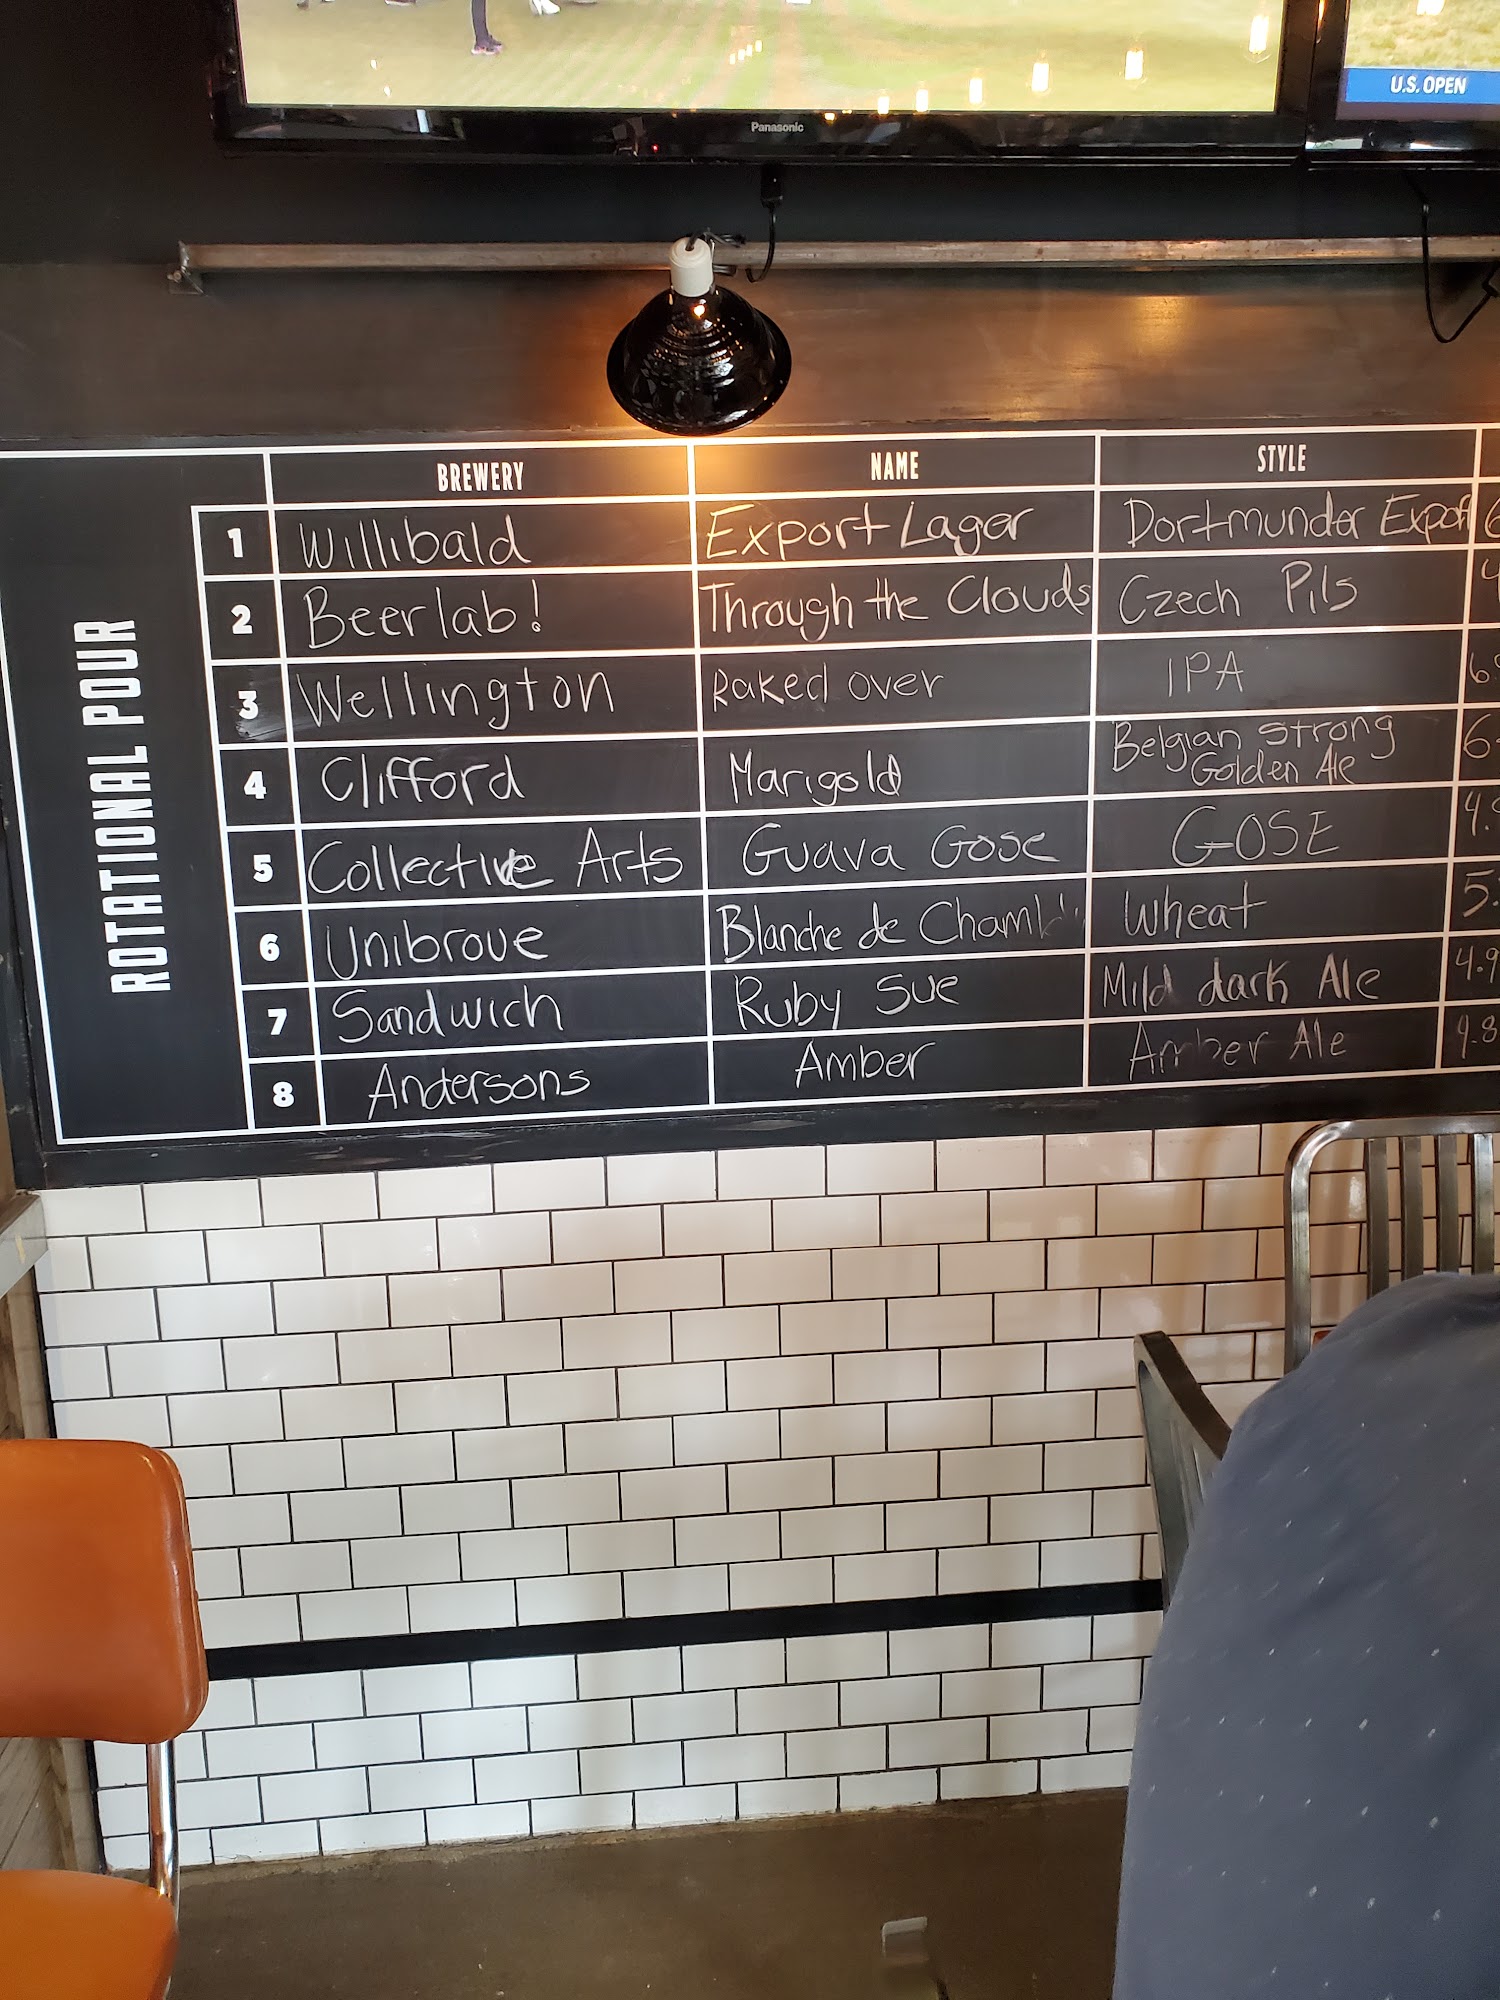 U.S. OPEN
Panasonic
ROTATIONAL POUR
BREWERY NAME STYLE
1 Willibald Export Lager Dortmunder Export
2 Beerlab! Through the Clouds Czech Pils
3 Wellington Raked over IPA
4 Clifford Marigold Belgian Strong
Golden Ale
5 Collective Arts Guava Gose GOSE
6 Unibroue Blanche de Wheat
7 Sandwich Ruby Sue Mild dark Ale 4.9
8 Andersons Amber Amber Ale 4.8